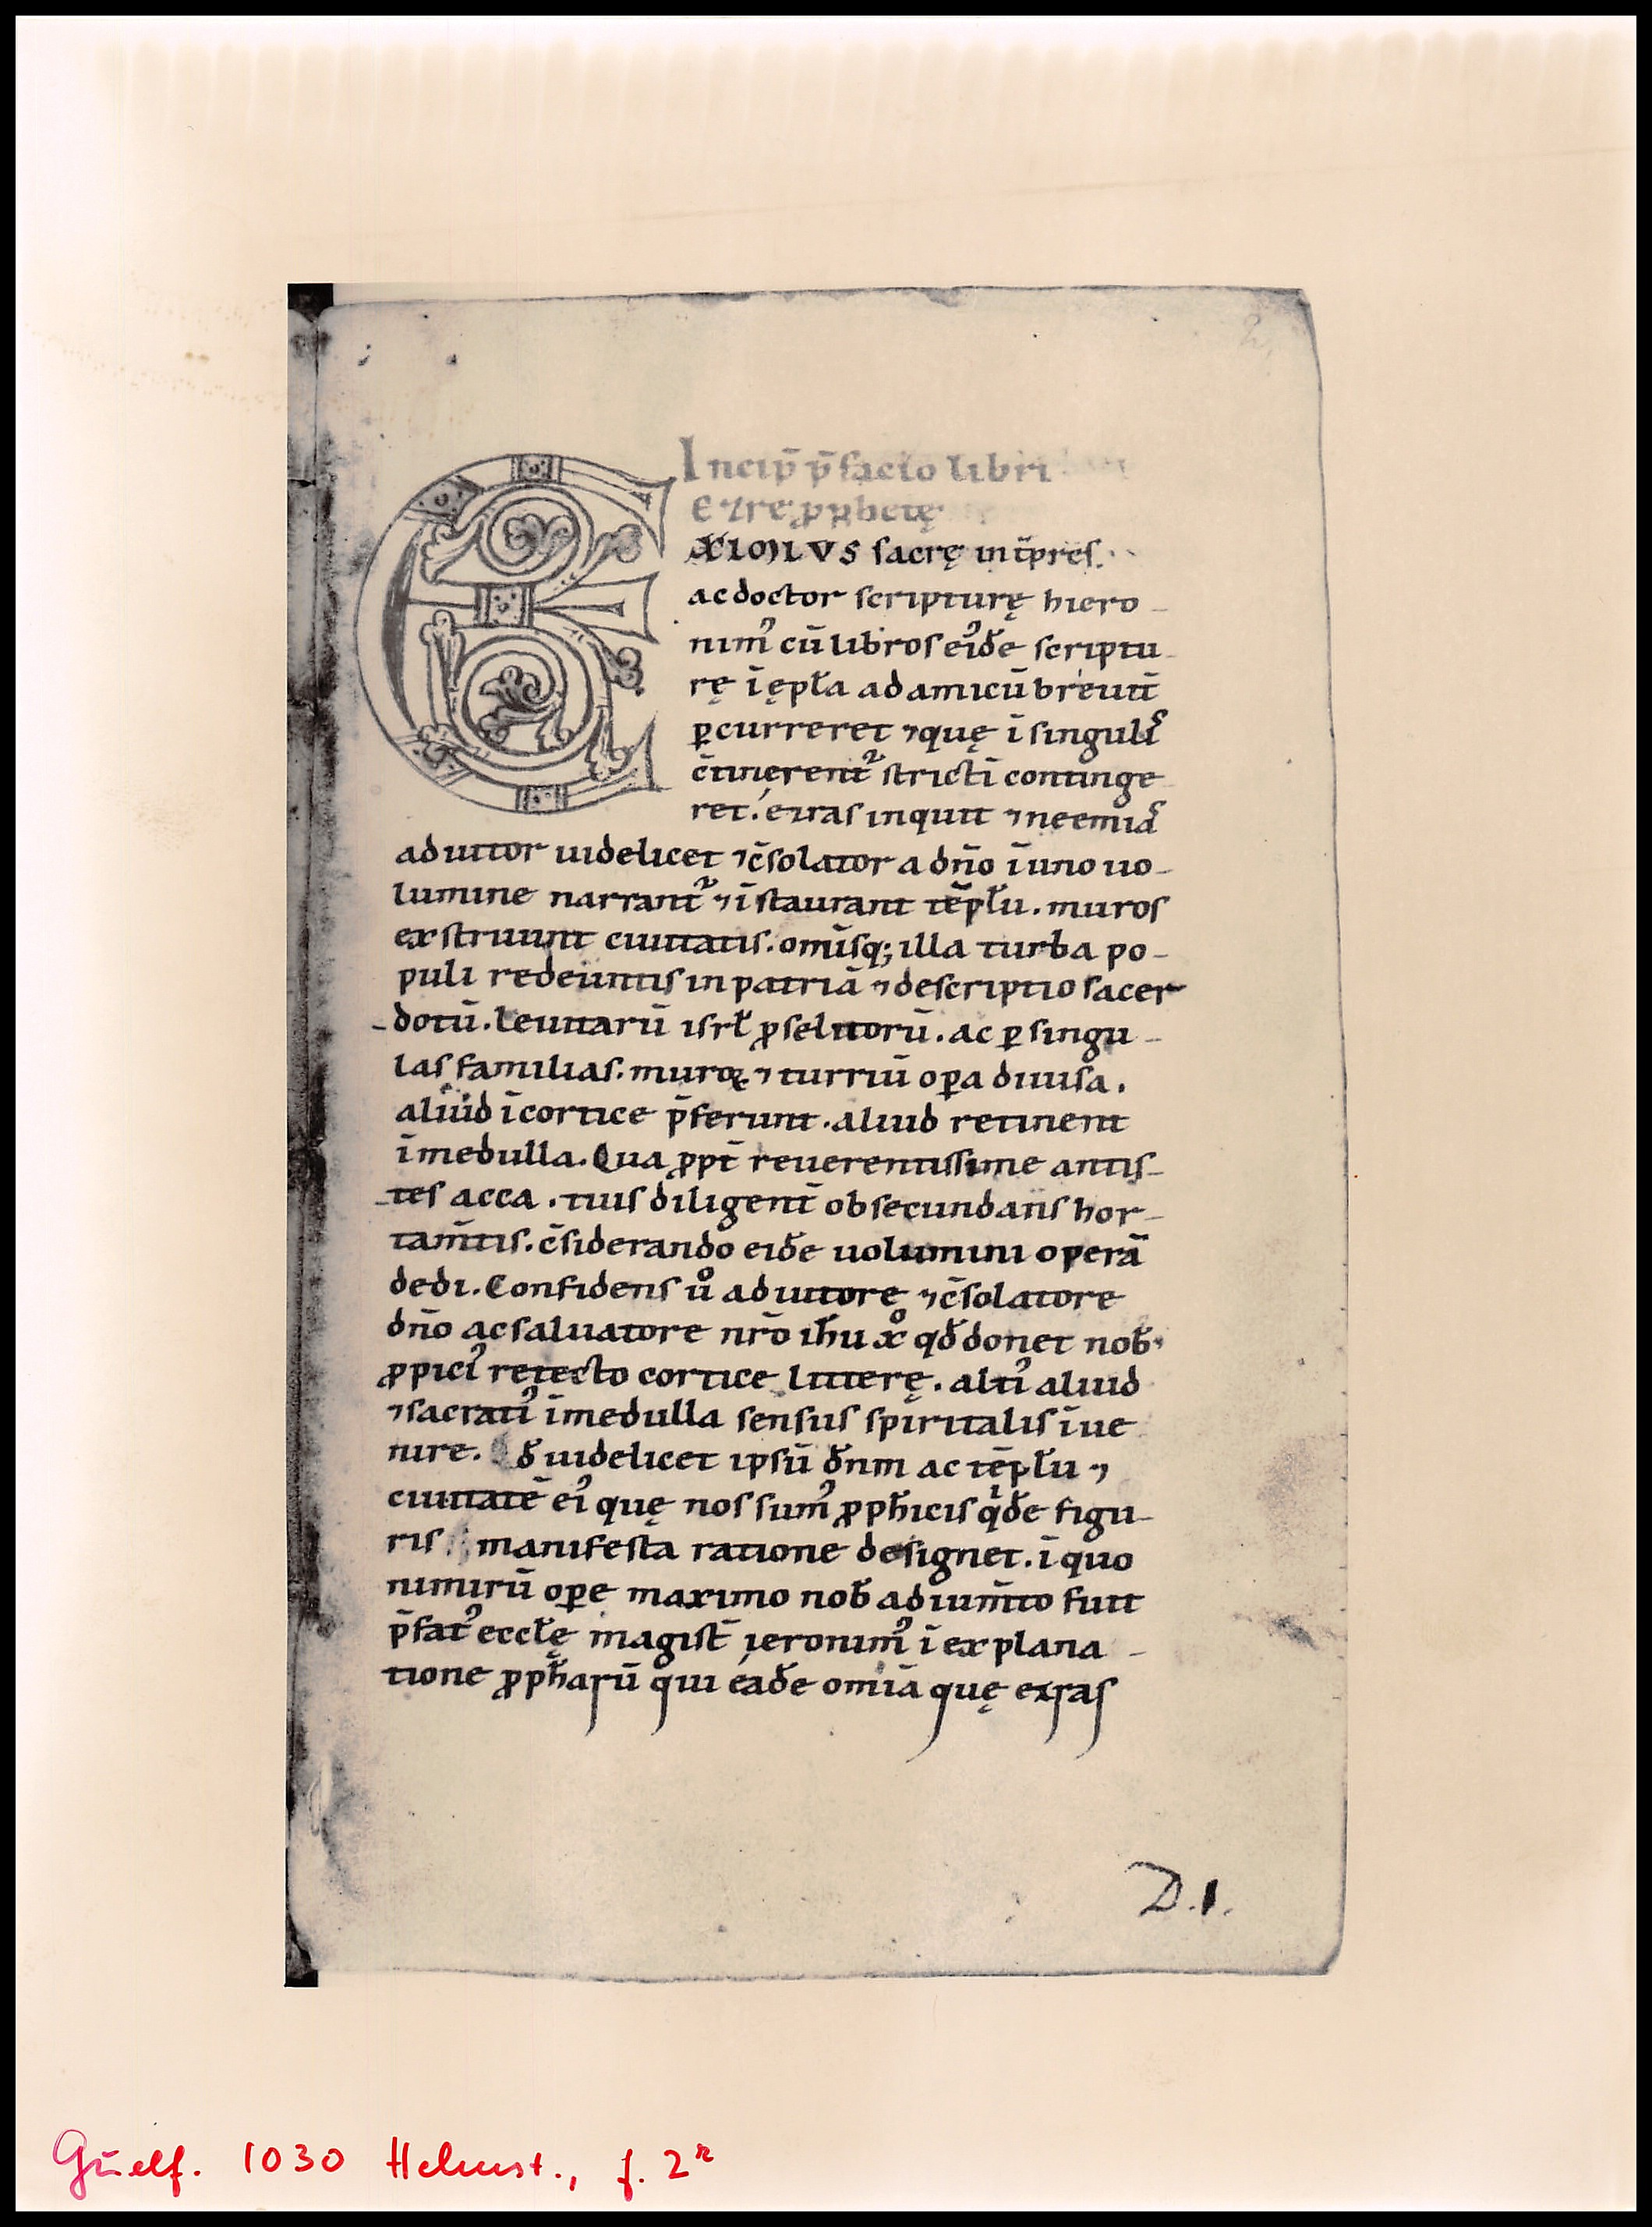 Incip̄ p̄facio libri
Ezre ꝓph̄etę
EX̄IMIVS sacrę int̄pres.
ac doctor scripturę hiero-
nimꝰ cū libros eiꝰđe scriptu-
rę ī ępł̄a ad amicū breuit̄
ꝑcurreret ⁊ quę ī singulis
c̄tinerent᷑ strictī continge
ret. ezras inquit ⁊ neemias
adiutor uidelicet ⁊ c̄solator a dn̄o ī uno uo-
lumine narrant᷑ ⁊ īstaurant tēpłu. muros
exstruunt ciuitatis. omīsq; illa turba po-
puli redeuntis in patriā ⁊ descriptio sacer
dotū. leuitarū isrł ꝓselitorū. ac ꝑ singu-
las familias. muroꝝ ⁊ turriū oꝑa diuisa.
aliud ī cortice p̄ferunt. aliud retinent
ī medulla. Qua ꝓpt̄ reuerentissime antis-
tes acca. tuis diligent̄ obsecundans hor-
tam̄tis. c̄siderando eiđe uolumini operā
dedi. Confidens uͦ adiutore ⁊ c̄solatore
dn̄o ac saluatore nr̄o ih̄u xͦ qđ donet nob̄
ꝓpiciꝰ retecto cortice litterę. altiꝰ aliud
⁊ sacratiꝰ ī medulla sensus spiritalis īue
nire. qđ uidelicet ipsū đnm ac tēpłu ⁊
ciuitatē eiꝰ quę nos sumꝰ ꝓph̄icis qͥđe figu-
ris manifesta ratione designet. ī quo
nimirū oꝑe maximo nob̄ adium̄to fuit
p̄fatꝰ eccłę magist̄ ieronimꝰ ī explana-
tione ꝓph̄arū qui eađe omīa quę ezras
D.1.
Guelf. 1030 Helmst., f. 2ʳ